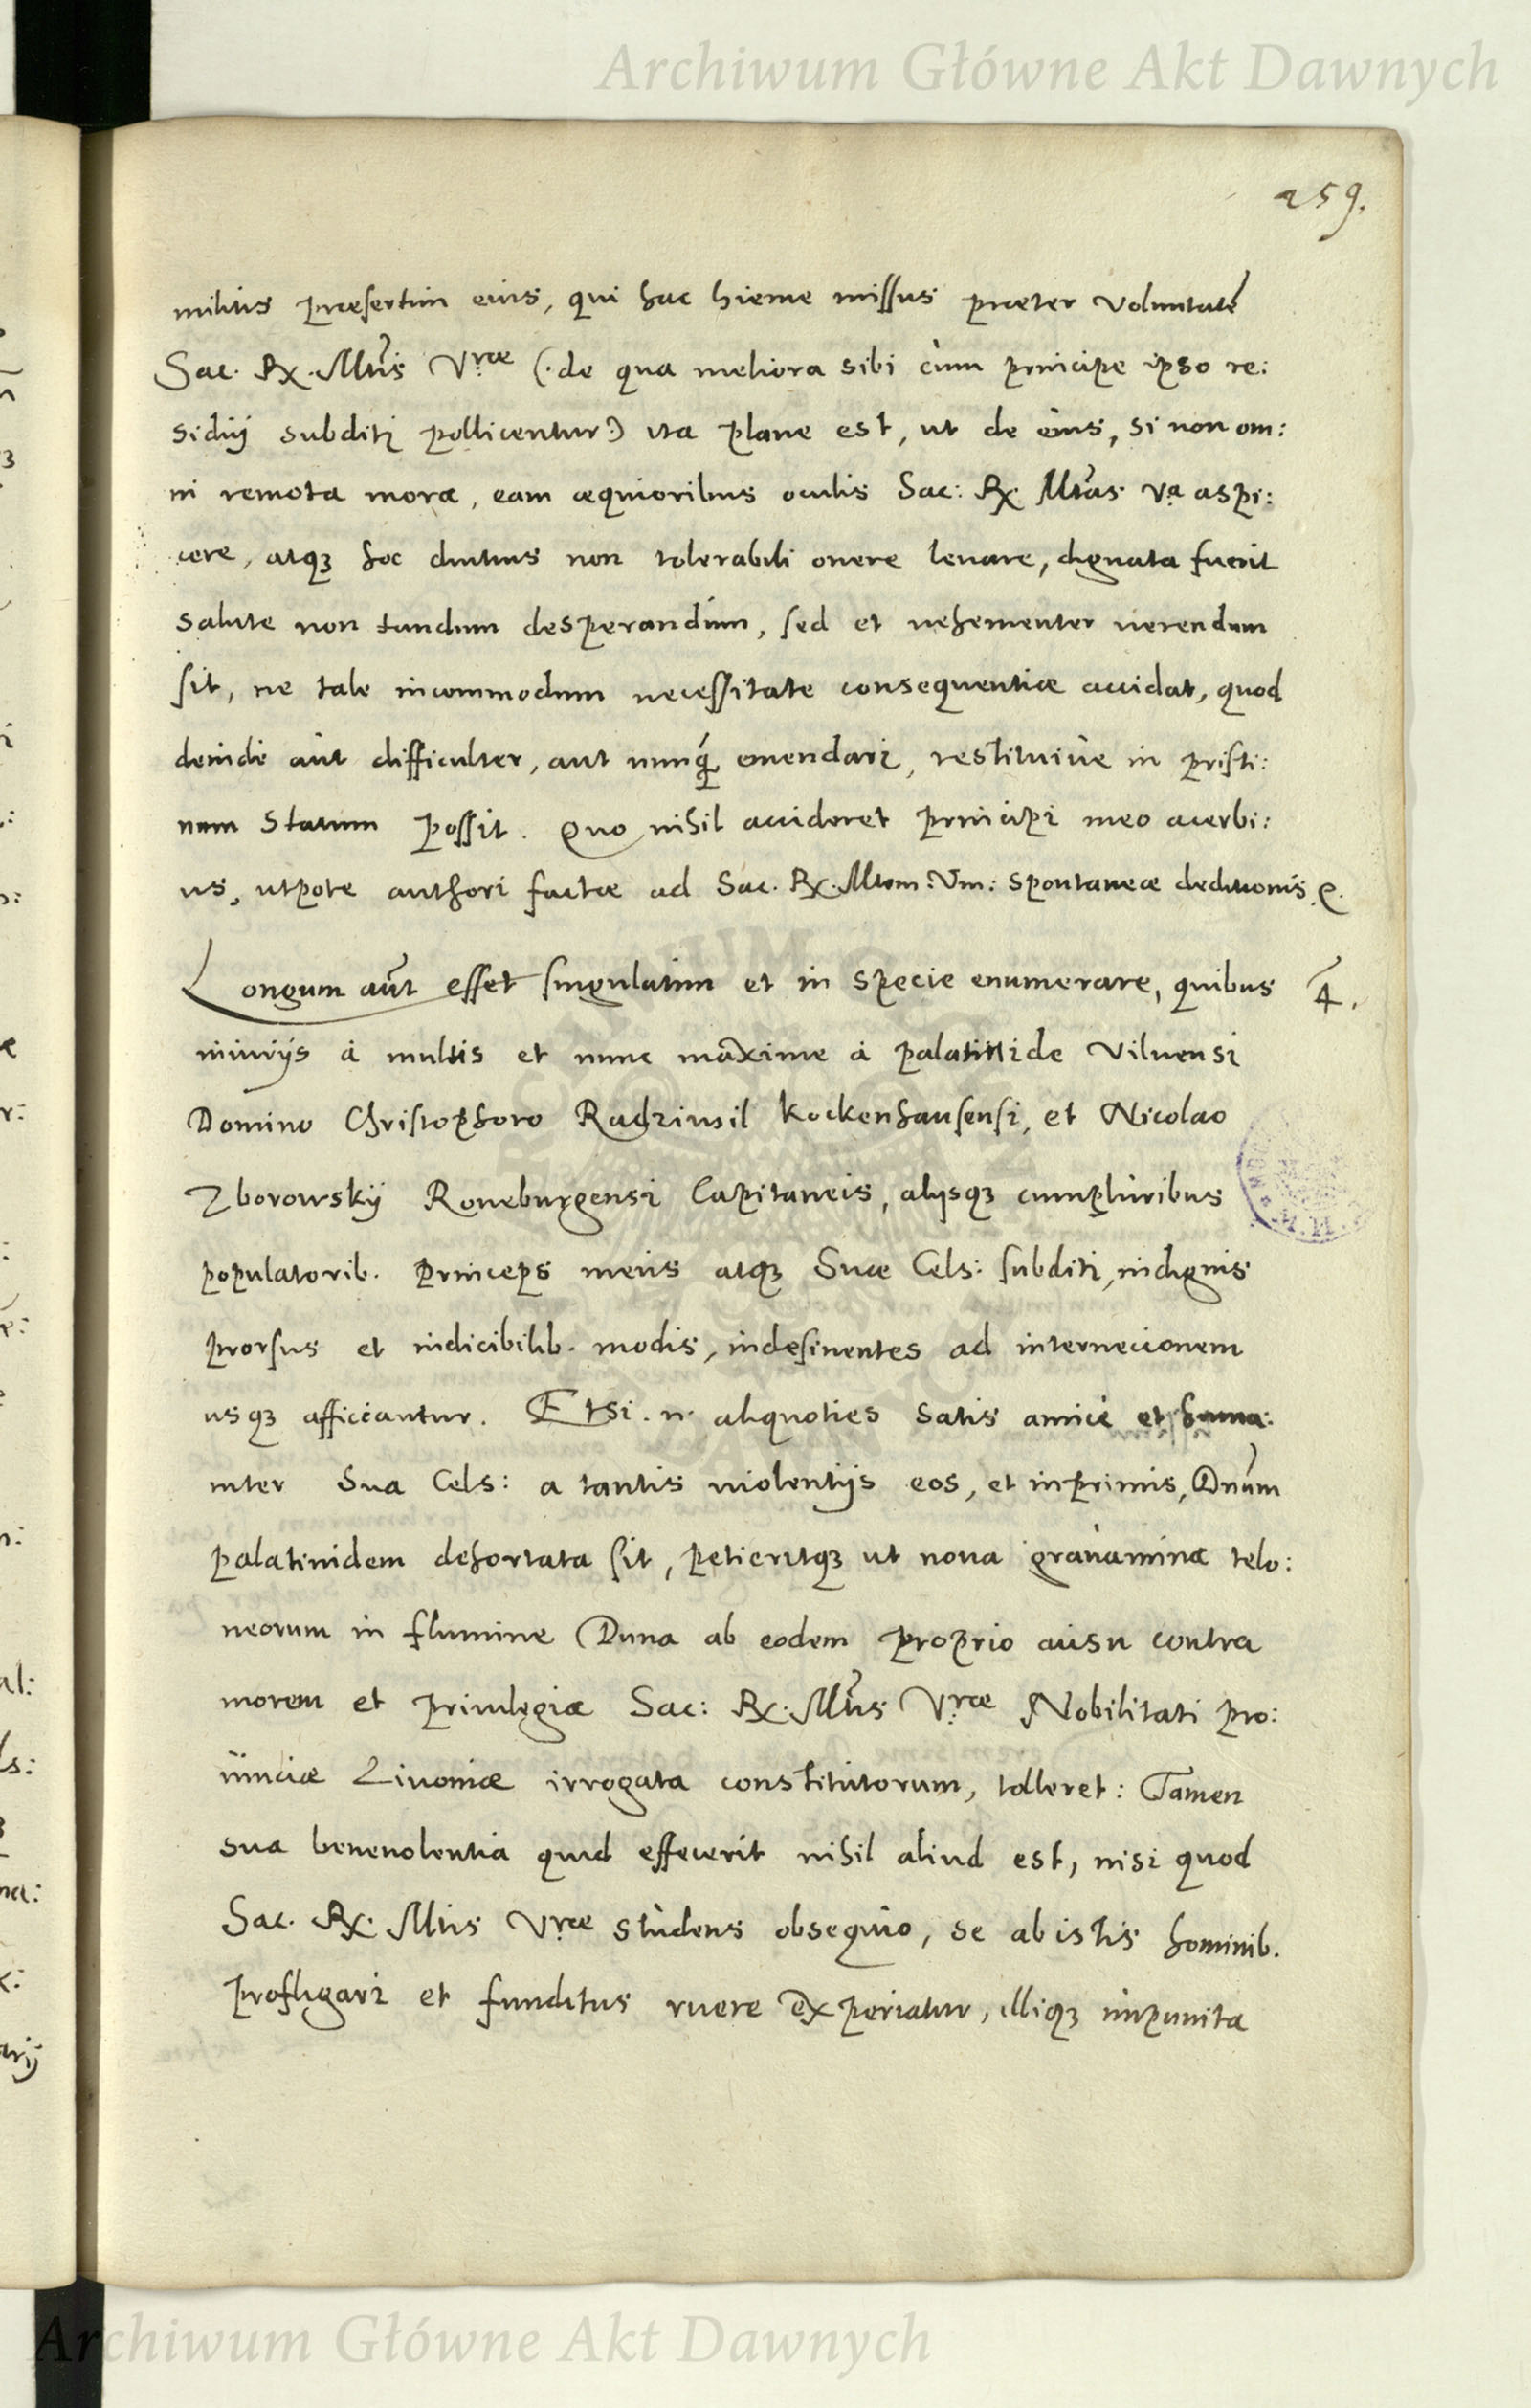 Archiwum Główne Akt Dawnych
259.
militis præsertim eius, qui hac hieme missus præter voluntatē
Sac. Rx. Mtis Vræ (. de qua meliora sibi cum principe ipso re:
sidui subditi pollicentur.) ita plane est, ut de eius, si non om:
ni remota mora, eam æquioribus oculis Sac: Rx. Mtas Va aspi:
cere, atqꝫ hoc diutius non tolerabili onere levare, dignata fuerit
salute non tandum desperandum, sed et uehementer uerendum
sit, ne tale incommodum necessitate consequentiæ accidat, quod
deinde aut difficulter, aut nunq̃ emendari, restituiue in pristi:
num statum possit. Quo nihil accideret principi meo acerbi:
us, utpote authori factæ ad Sac. Rx. Mtem: Vm: spontaneæ deditionis
Longum aūt esset singulatim et in specie enumerare, quibus 4.
iniurijs à multis et nunc maxime à palatinide Vilnensi
Domino Christophoro Radziuil Kockenhausensi, et Nicolao
Zborowskij Roneburgensi Capitaneis, alijsqꝫ cumpluribus
populatorib. princeps meus atqꝫ Suæ Cels: subditi, indignis
prorsus et indicibilib. modis, indesinentes ad internecionem
usqꝫ afficiantur. Etsi .n. aliquoties satis amicè et huma:
niter Sua Cels: a tantis uiolentijs eos, et inprimis, Dnūm
palatinidem dehortata sit, petieritqꝫ ut noua grauamina telo:
neorum in flumine Duna ab eodem proprio ausu contra
morem et priuilegia Sac: Rx. Mtis Vræ Nobilitati pro:
uinciæ Liuoniæ irrogata constitutorum, tolleret: Tamen
sua beneuolentia quid effecerit nihil aliud est, nisi quod
Sac. Rx. Mtis Vræ studens obsequio, se ab istis hominib.
profligari et funditus ruere experiatur, illiqꝫ impunita
Archiwum Główne Akt Dawnych